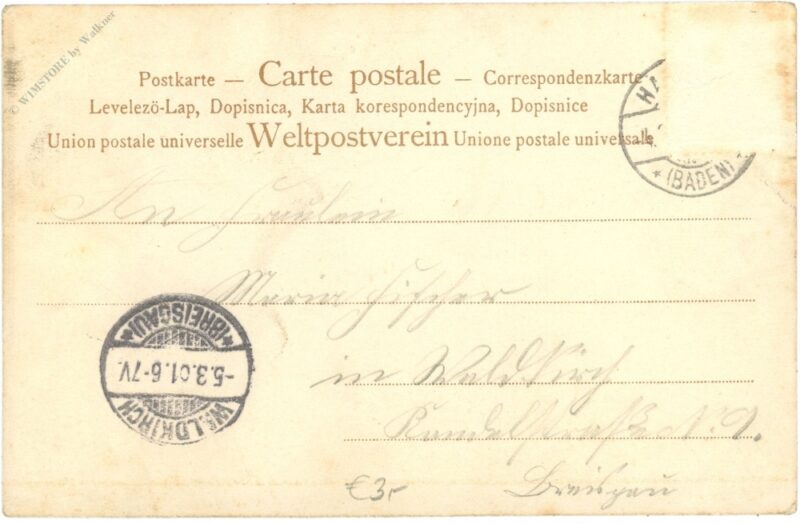 © WIMSTORE by Walkner
Postkarte — Carte postale — Correspondenzkarte
Levelező-Lap, Dopisnica, Karta korespondencyjna, Dopisnice
Union postale universelle Weltpostverein Unione postale universale
HA
* (BADEN) *
An Fräulein
Maria Fischer
in Waldkirch
Kandelstraße
Breisgau
* (BREISGAU) *
-5.3.01.6-7V.
WALDKIRCH
€3,-